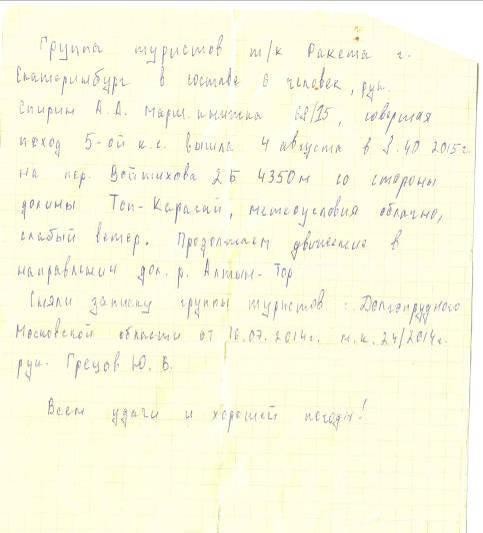 Группа туристов т/к Ракета г.
Екатеринбург в составе 6 человек, рук.
Спирин А.А. марш. книжка 68/15, совершая
поход 5-ой к.с. вышла 4 августа в 9.40 2015г
на пер. Войтихова 2Б 4350м со стороны
долины Топ-Карагай, метеоусловия облачно,
слабый ветер. Продолжаем движение в
направлении дол. р. Алтын-Тор
Сняли записку группы туристов г. Долгопрудного
Московской области от 16.07.2014г. м.к. 24/2014г.
рук. Грецов Ю. В.
Всем удачи и хорошей погоды!